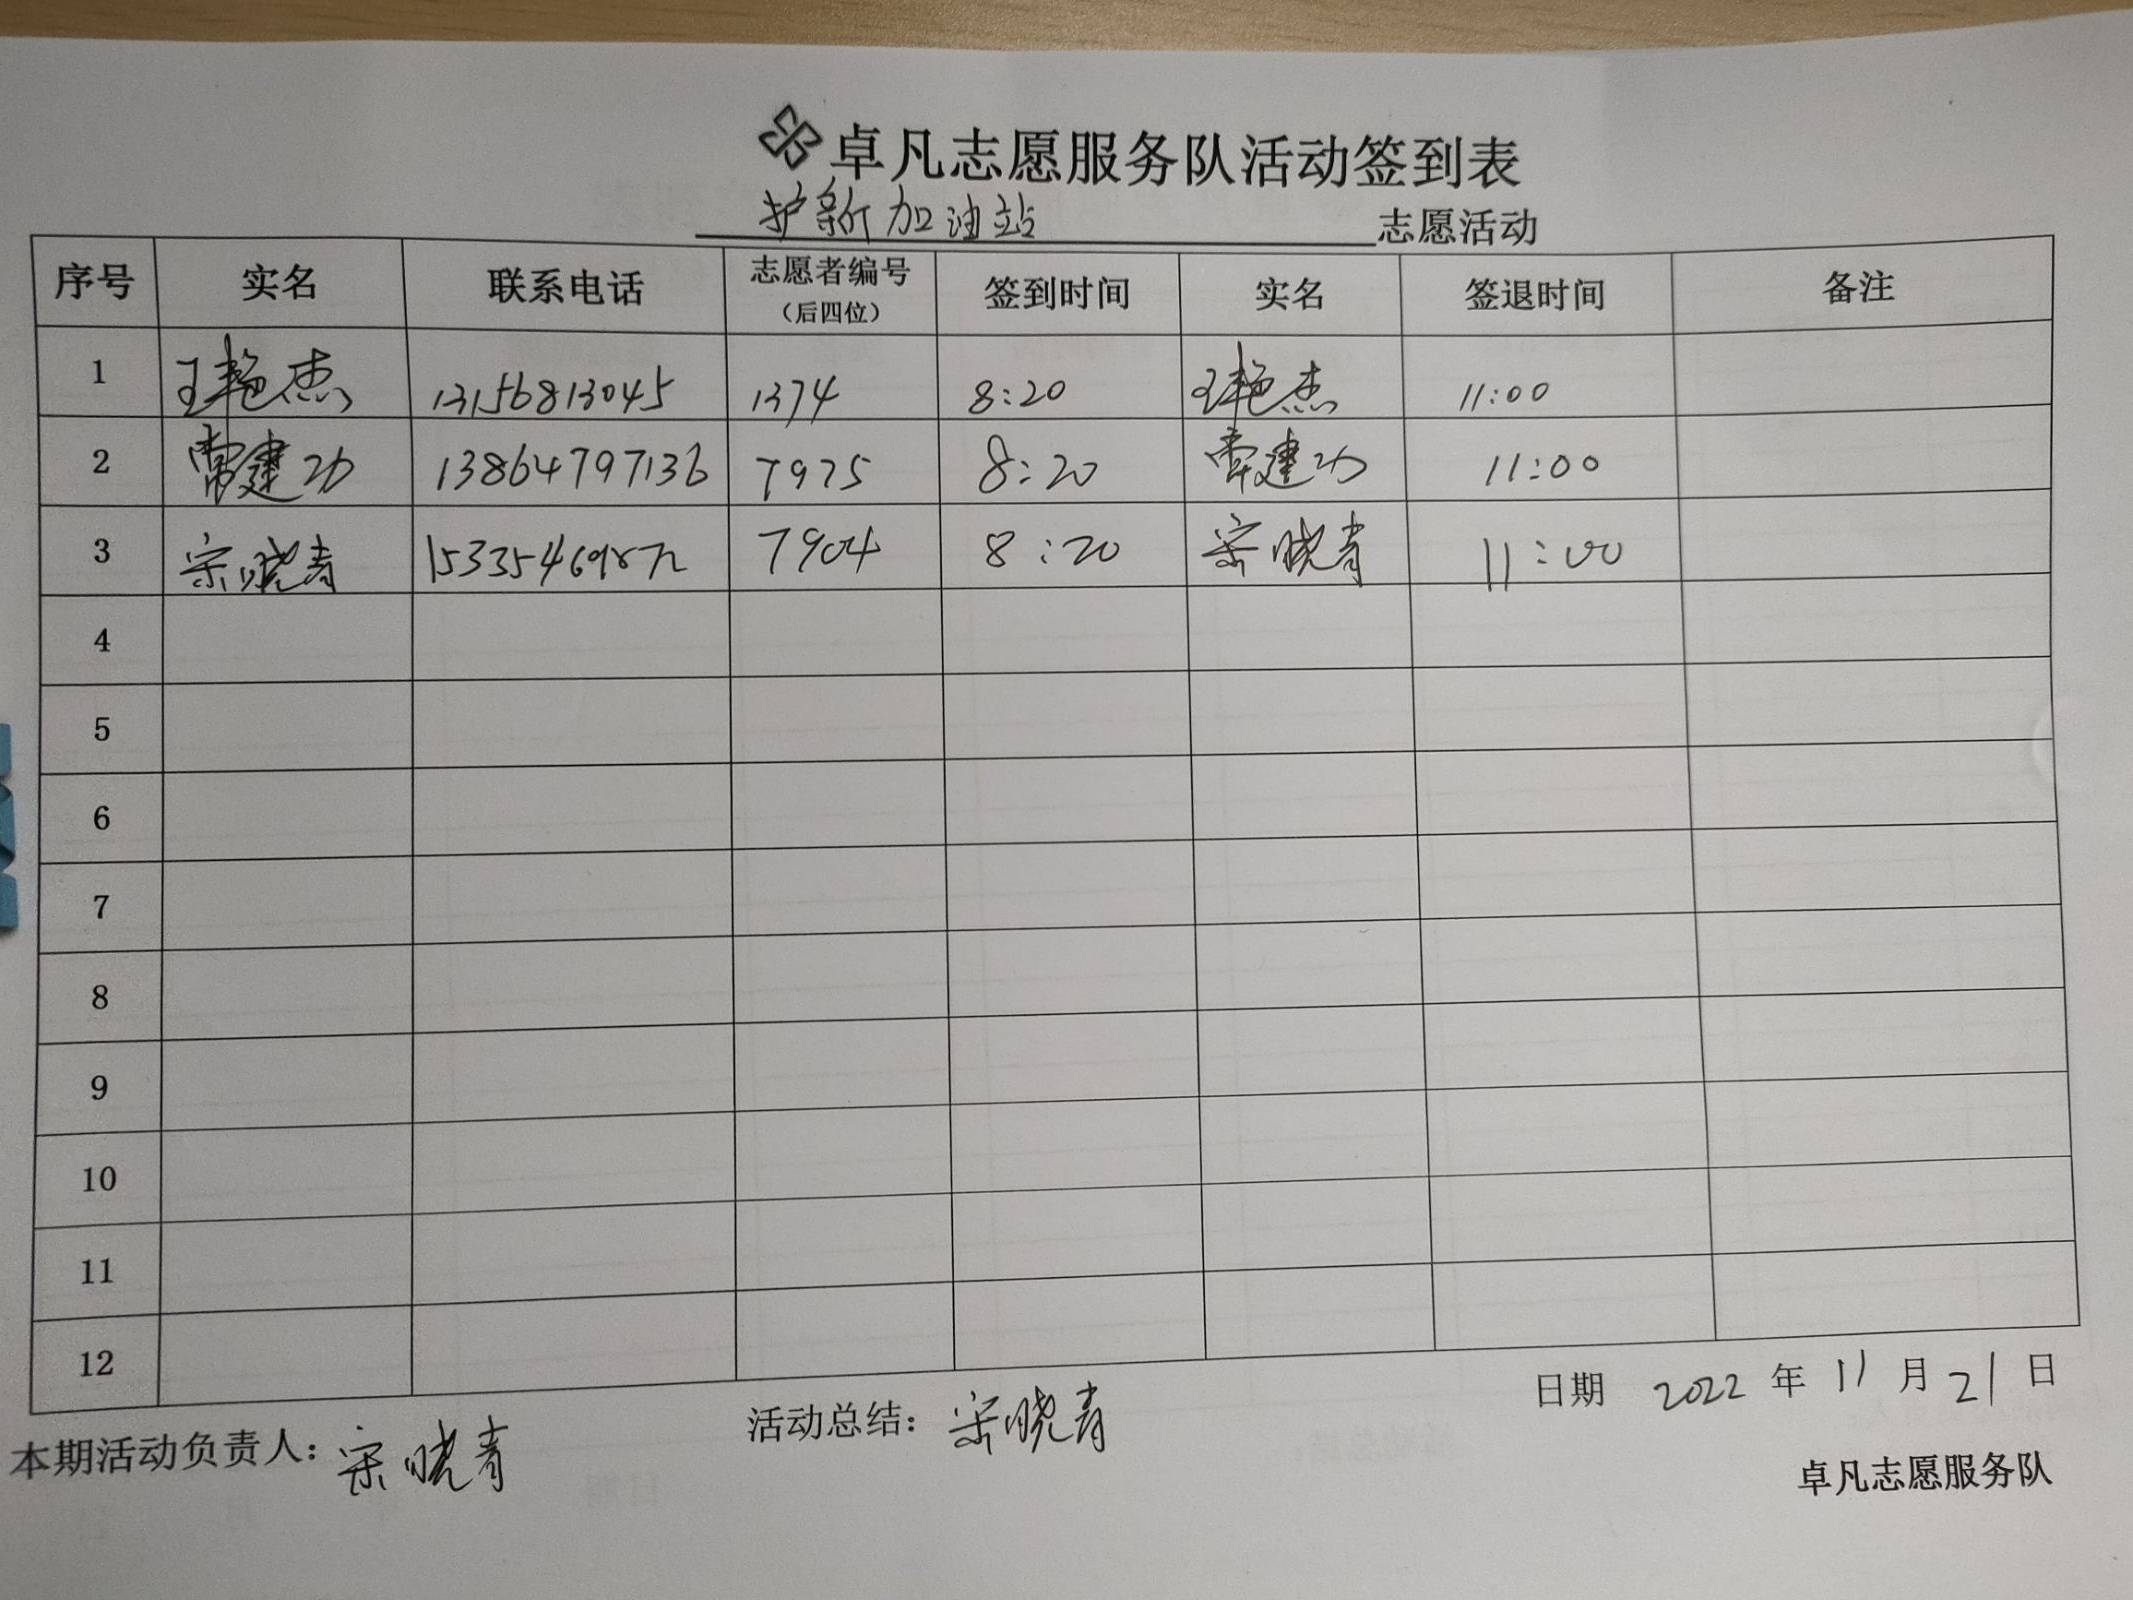 卓凡志愿服务队活动签到表
护新加油站 志愿活动
序号 实名 联系电话 志愿者编号（后四位） 签到时间 实名 签退时间 备注
1 王艳杰 13156813045 1374 8:20 王艳杰 11:00
2 常建功 13864797136 7975 8:20 常建功 11:00
3 宋晓青 7904 8:20 宋晓青 11:00
4
5
6
7
8
9
10
11
12
日期 2022 年 11 月 21 日
本期活动负责人：宋晓青 活动总结：宋晓青
卓凡志愿服务队